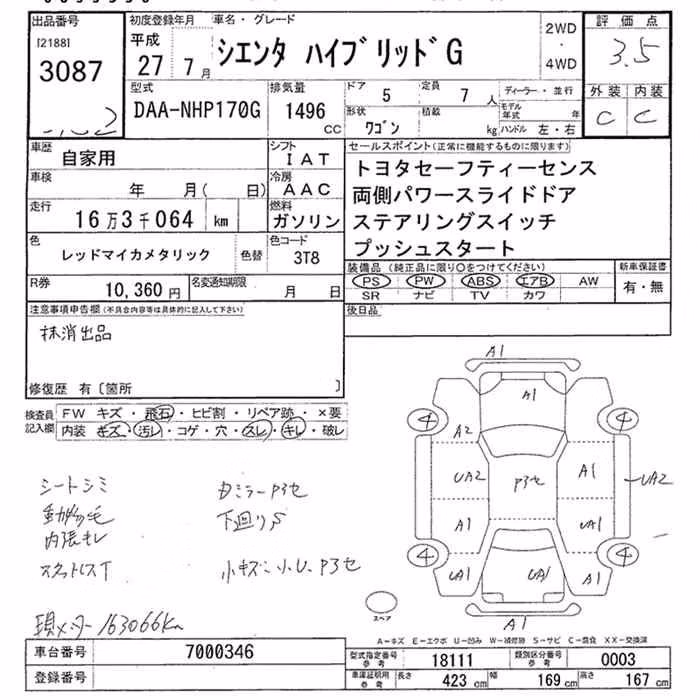 出品番号 初度登録年月 車名・グレード 2WD 評価点
[2188] 平成 シエンタ ハイブリッドG ・ 3.5
3087 27年 7月 4WD
型式 排気量 ドア 5 定員 7人 ディーラー・並行 外装 内装
DAA-NHP170G 1496 CC 形状 ワゴン 積載 kg モデル年式 年 C C
ハンドル 左・右
車歴 自家用 シフト IAT セールスポイント(正常に機能するものに限ります)
車検 年 月( 日) 冷房 AAC トヨタセーフティーセンス
走行 16万3千064 km 燃料 ガソリン 両側パワースライドドア
色 レッドマイカメタリック 色替 色コード 3T8 ステアリングスイッチ
プッシュスタート
R券 10,360円 名変通知期限 月 日 装備品(純正品に限り○をつけてください) 新車保証書
PS PW ABS エアB AW 有・無
SR ナビ TV カワ
注意事項申告欄(不具合内容等は具体的に記入して下さい) 後日品
抹消出品
修復歴 有〔箇所 〕
検査員 FW キズ・飛石・ヒビ割・リペア跡・×要
記入欄 内装 キズ・汚レ・コゲ・穴・スレ・キレ・破レ
A1
A1
4 4
A2
UA2 P3セ A1 UA2
A1 UA1
4 4
UA1 UA1 A1
A1
スペア
シートシミ Dミラーp3セ
動物の毛 下廻りS
内張キレ
小キズ小U、P3セ
現メーター163066Km
A-キズ E-エクボ U-凹み W-補修跡 S-サビ C-腐食 XX-交換済
車台番号 7000346 型式指定番号 参考 18111 類別区分番号 参考 0003
登録番号 車庫証明用 参考 長さ 423 cm 幅 169 cm 高さ 167 cm